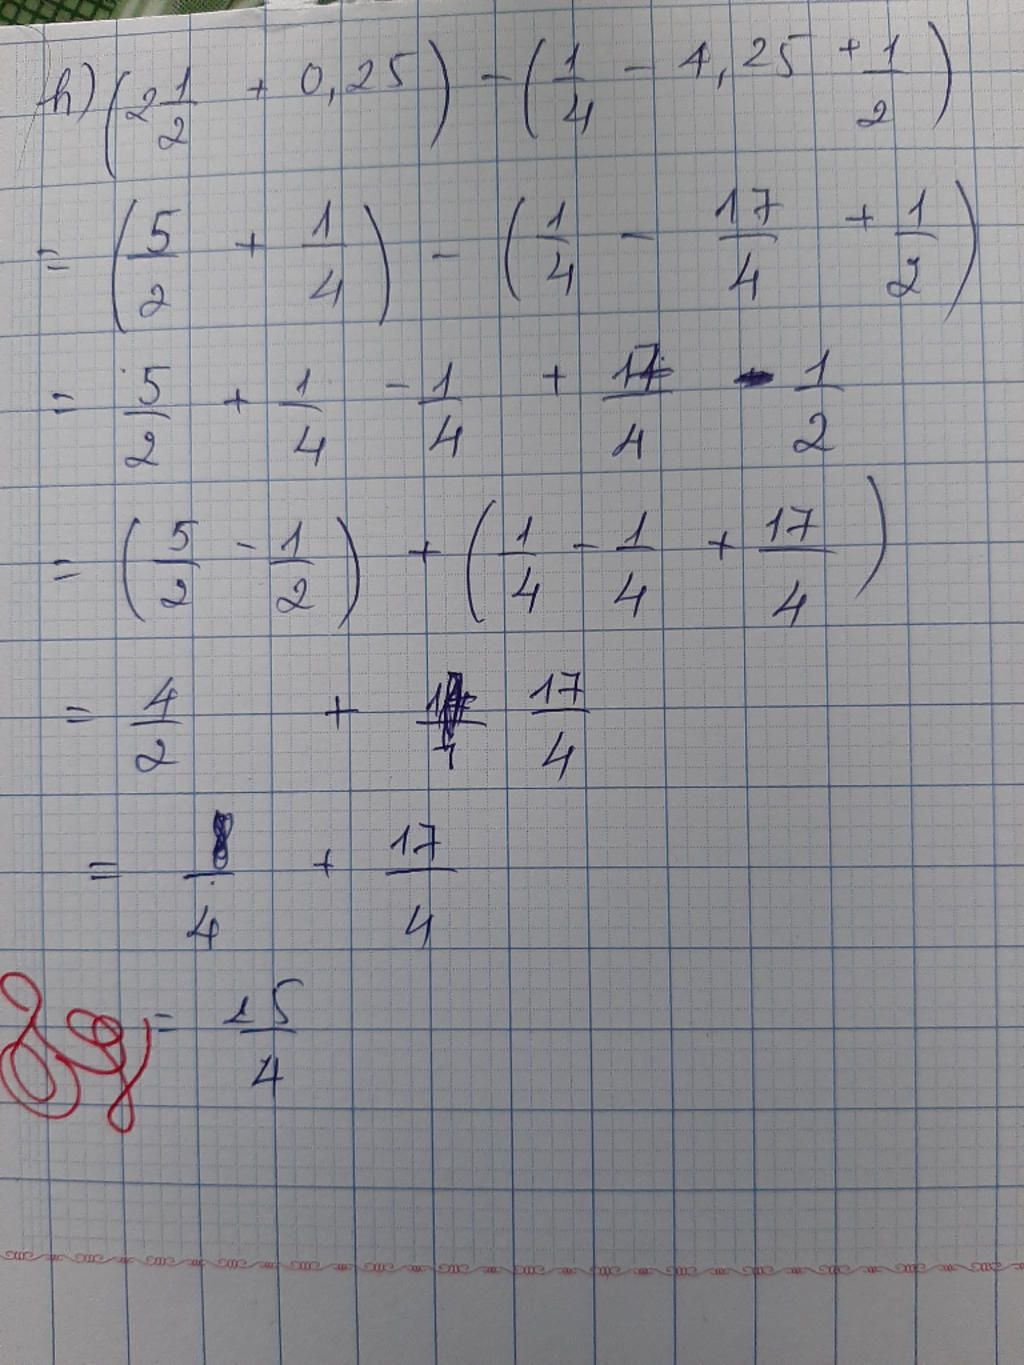 h) (2 1/2 + 0,25) - (1/4 - 4,25 + 1/2)
= (5/2 + 1/4) - (1/4 - 17/4 + 1/2)
= 5/2 + 1/4 - 1/4 + 17/4 - 1/2
= (5/2 - 1/2) + (1/4 - 1/4 + 17/4)
= 4/2 + 17/4
= 8/4 + 17/4
= 25/4